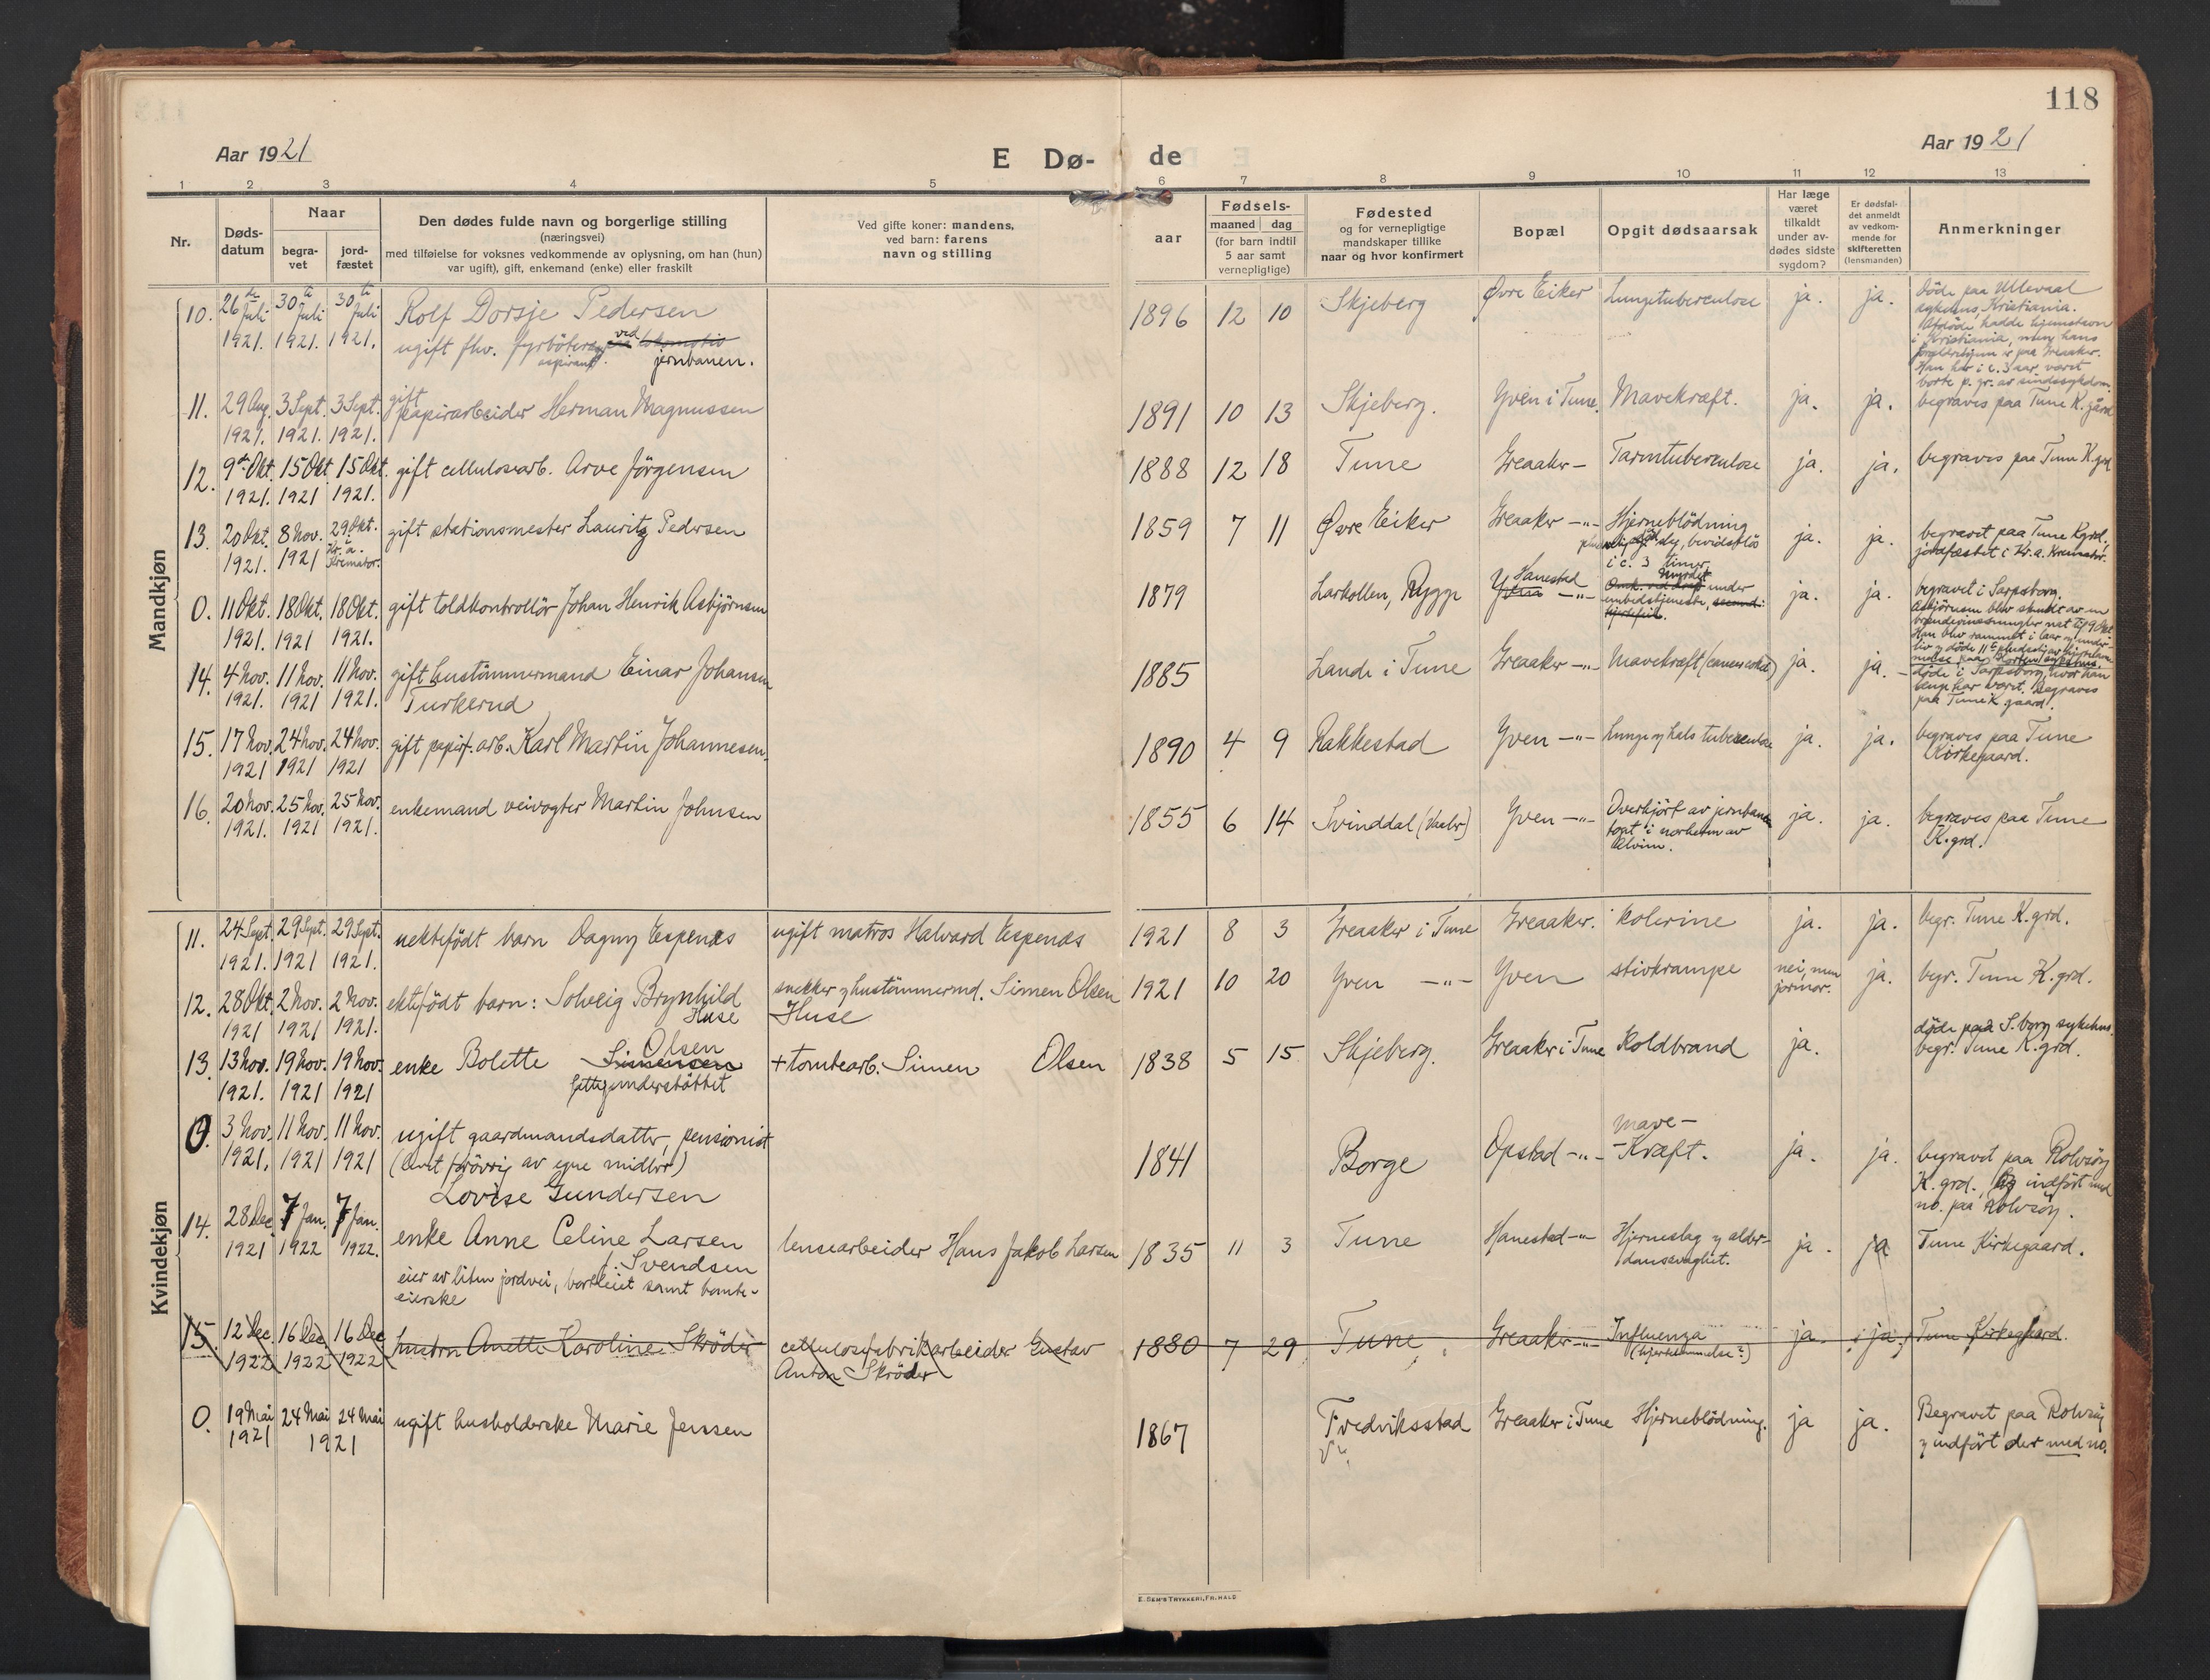 118
Aar 1921
E Dø-
de
Aar 1921
1 2 3 4 5 6 7 8 9 10 11 12 13
Nr.
Døds-
datum
Naar
begra-
vet
jord-
fæstet
Den dødes fulde navn og borgerlige stilling
(næringsvei)
med tilføielse for voksnes vedkommende av oplysning, om han (hun)
var ugift), gift, enkemand (enke) eller fraskilt
Ved gifte koner: mandens,
ved barn: farens
navn og stilling
aar
Fødsels-
maaned dag
(for barn indtil
5 aar samt
vernepligtige)
Fødested
og for vernepligtige
mandskaper tillike
naar og hvor konfirmert
Bopæl
Opgit dødsaarsak
Har læge
været
tilkaldt
under av-
dødes sidste
sygdom?
Er dødsfal-
det anmeldt
av vedkom-
mende for
skifteretten
(lensmanden)
Anmerkninger
Mandkjøn
10. 26de Juli 30te Juli 30te Juli Rolf Dorsje Pedersen
1921. 1921. 1921. ugift fhv. fyrböter ved lokomotiv
aspirant. jernbanen.
1896 12 10 Skjeberg Øvre Eiker Lungetuberculose ja. ja.
døde paa Ullevaal
sykehus, Kristiania.
Afdöde hadde hjemstavn
i Kristiania, men hans
forældrehjem er paa Greaaker.
Han har i c. 3 aar været
borte p. gr. av sindssykdom.
11. 29 Aug. 3 Sept. 3 Sept. gift
papirarbeider Herman Magnussen
1921. 1921. 1921.
1891 10 13 Skjeberg. Yven i Tune. Mavekræft. ja. ja. begraves paa Tune K. gård
12. 9de Okt. 15 Okt. 15 Okt. gift cellulosearb. Arve Jörgensen
1921. 1921 1921.
1888 12 18 Tune Greaaker - Tarmtuberculose ja. ja. begraves paa Tune K.grd
13. 20 Okt. 8 Nov. 29 Okt. gift stationsmester Lauritz Pedersen
1921. 1921 Kr.a. Kremator.
1859 7 11 Øvre Eiker Greaaker -"- Hjerneblödning
bevidstlös
i c. 3 timer
ja. ja. begravet paa Tune Kgrd.,
jordfæstet i Kr.a. Kremator.
0. 11 Okt. 18 Okt. 18 Okt. gift toldkontrollör Johan Henrik Asbjörnsen
1921. 1921 1921.
1879 Larkollen, Rygge Hanestad
Yven -"- Myrdet
under
embedstjeneste,
hjertefeil.
ja. ja. begravet i Sarpsborg.
Asbjörnsen blev skudt av en
brændevinssmugler nat til 9 Okt.
14. 4 Nov. 11 Nov. 11 Nov. gift hustömmermand Einar Johansen
1921. 1921 1921. Turkerud
1885 Lande i Tune Greaaker -"- Mavekræft ja. ja. -
døde i Sarpsborg, hvor han
længe har været. Begraves
paa Tune K. gaard.
15. 17 Nov. 24 Nov. 24 Nov. gift papirf. arb. Karl Martin Johannesen.
1921 1921 1921
1890 4 9 Rakkestad Yven -"- Lunge og hals tuberculose ja. ja. begraves paa Tune
Kirkegaard.
16. 20 Nov. 25 Nov. 25 Nov. enkemand veivogter Martin Johnsen
1921. 1921 1921.
1855 6 14 Svinddal (Vaaler) Yven -"- Overkjört av jernbane
togt i nærheten av
Alvim.
ja. ja. begraves paa Tune
K.grd.
Kvindekjøn
11. 24 Sept. 29 Sept. 29 Sept. uektefödt barn Dagny Espenæs ugift matros Halvard Espenæs
1921. 1921 1921.
1921 8 3 Greaaker i Tune Greaaker. kolerine ja. ja. begr. Tune K.grd.
12. 28 Okt. 2 Nov. 2 Nov. ektefödt barn: Solveig Brynhild snekker og hustömmermd. Simen Olsen
1921 1921 1921. Huse Huse
1921 10 20 Yven -"- Yven stivkrampe nei, men
jormor. ja. begr. Tune K.grd.
13. 13 Nov. 19 Nov. 19 Nov. enke Bolette Simensen Olsen + tomtearb. Simen Olsen
1921. 1921 1921 fattigunderstöttet
1838 5 15 Skjeberg. Greaaker i Tune Koldbrand ja. döde paa S.borg sykehus.
begr. Tune K.grd.
0. 3 Nov. 11 Nov. 11 Nov. ugift gaardmandsdatter, pensionist
1921. 1921 1921 (levet forövrig av egne midler)
Lovise Gundersen
1841 Borge Opstad -"- mave-
- Kræft. ja. ja. begravet paa Rolvsöy
K. grd., og indfört med
no. paa Rolvsöy.
14. 28 Dec. 7 Jan. 7 Jan. enke Anne Celine Larsen lensearbeider Hans Jakob Larsen
1921 1922 1922. f. Svendsen
eier av liten jordvei, bortleiet samt tomte-
eierske
1835 11 3 Tune Hanestad -"- Hjerneslag og alder-
domssvaghet. ja. ja Tune Kirkegaard.
15. 12 Dec 16 Dec 16 Dec hustru Anette Karoline Skröder cellulosefabrikarbeider Gustav
1922 1922 1922 Anton Skröder
1880 7 29 Tune Greaaker -"- Influenza
(hjertelammelse?) ja. ja. Tune Kirkegaard.
0. 19 Mai 24 Mai 24 Mai ugift husholderske Marie Jenssen
1921 1921
1867 Fredriksstad Greaaker i Tune Hjerneblödning. ja ja. Begravet paa Rolvsöy
og indfört der med no.
E. SEM'S TRYKKERI, FR.HALD